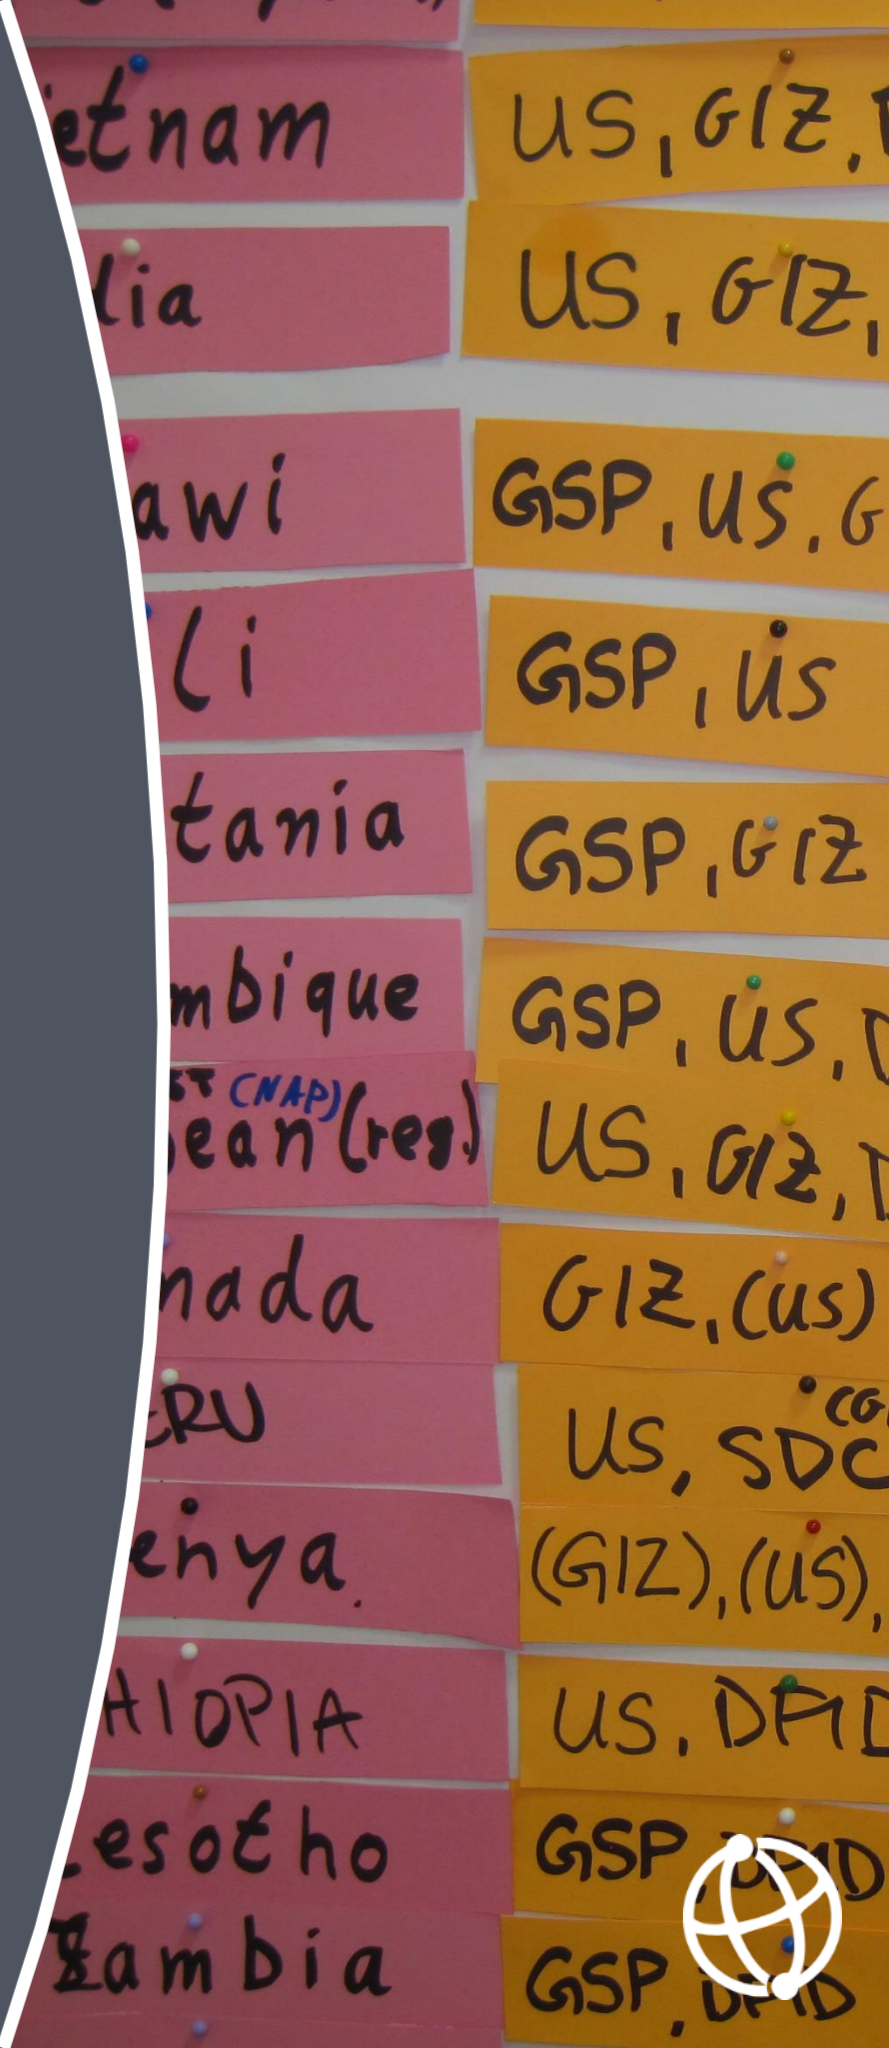 etnam US, GIZ,
dia US, GIZ,
awi GSP, US, G
li GSP, US
tania GSP, GIZ
mbique GSP, US, D
ST (NAP)
ean (reg.) US, GIZ, D
nada GIZ, (US)
ERU US, SDC (GI
enya. (GIZ), (US),
HIOPIA US, DFID
Lesotho GSP, DFID
Zambia GSP, DFID